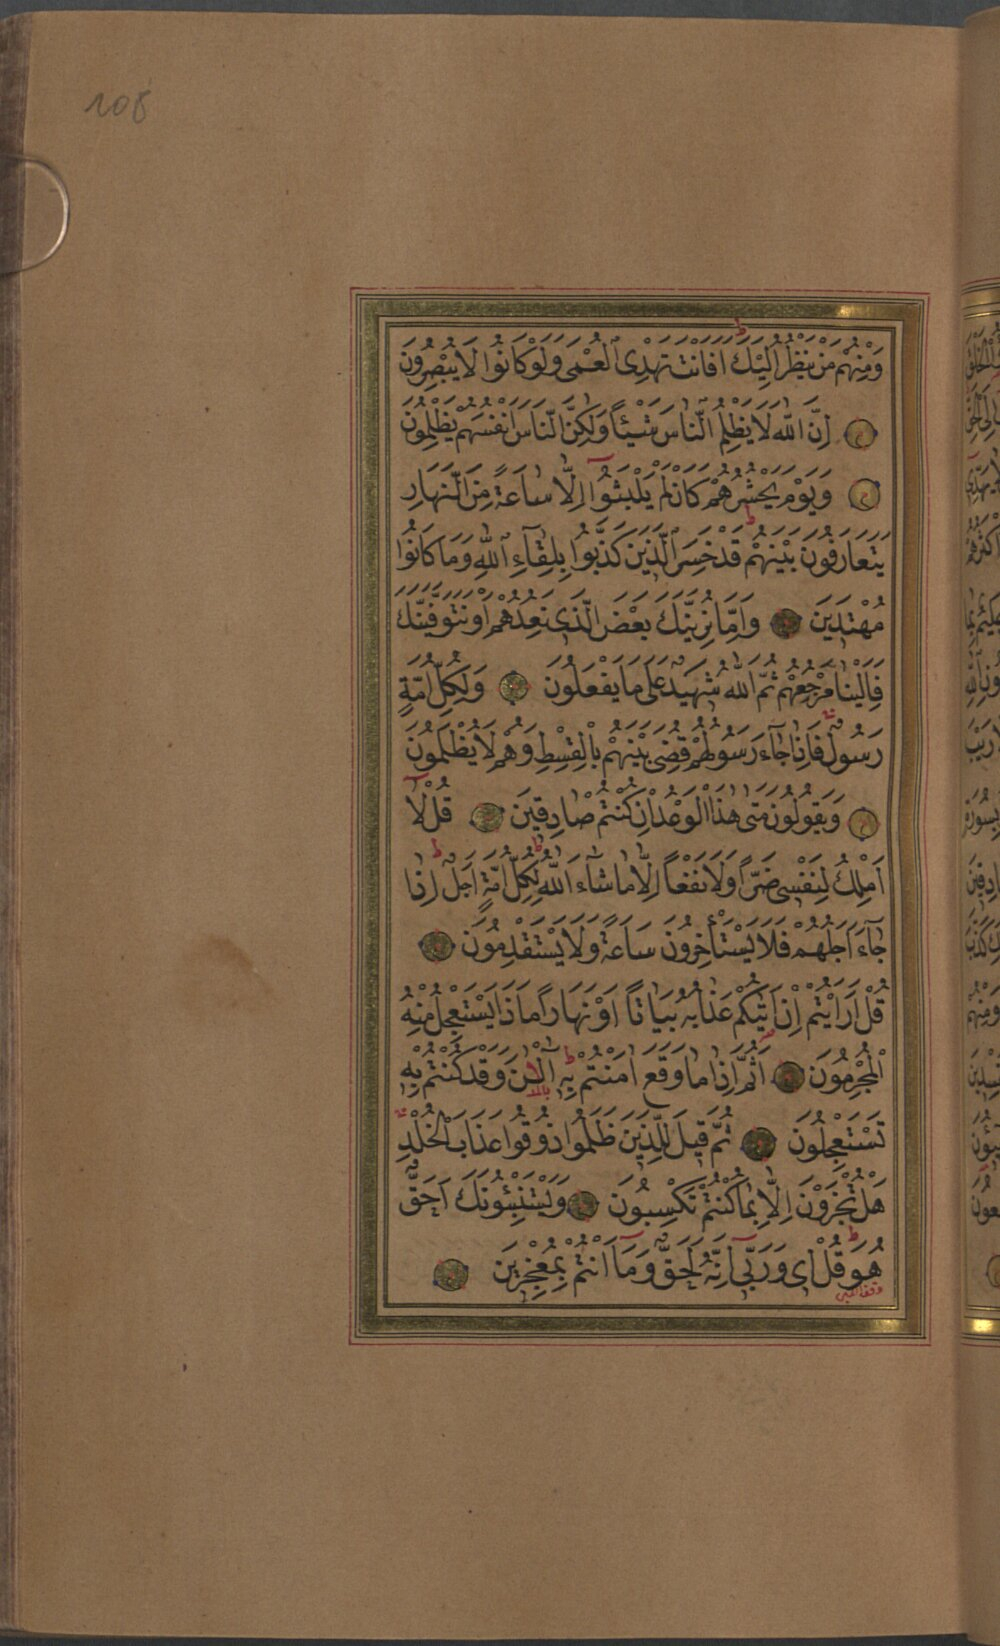 108
وَمِنْهُمْ مَنْ يَنْظُرُ اِلَيْكَ اَفَاَنْتَ تَهْدِى الْعُمْىَ وَلَوْ كَانُوا لَا يُبْصِرُونَ
اِنَّ اللّٰهَ لَا يَظْلِمُ النَّاسَ شَيْـًٔا وَلٰكِنَّ النَّاسَ اَنْفُسَهُمْ يَظْلِمُونَ
وَيَوْمَ يَحْشُرُهُمْ كَاَنْ لَمْ يَلْبَثُٓوا اِلَّا سَاعَةً مِنَ النَّهَارِ
يَتَعَارَفُونَ بَيْنَهُمْ قَدْ خَسِرَ الَّذِينَ كَذَّبُوا بِلِقَٓاءِ اللّٰهِ وَمَا كَانُوا
مُهْتَدِينَ وَاِمَّا نُرِيَنَّكَ بَعْضَ الَّذِى نَعِدُهُمْ اَوْ نَتَوَفَّيَنَّكَ
فَاِلَيْنَا مَرْجِعُهُمْ ثُمَّ اللّٰهُ شَهِيدٌ عَلٰى مَا يَفْعَلُونَ وَلِكُلِّ اُمَّةٍ
رَسُولٌ فَاِذَا جَٓاءَ رَسُولُهُمْ قُضِىَ بَيْنَهُمْ بِالْقِسْطِ وَهُمْ لَا يُظْلَمُونَ
وَيَقُولُونَ مَتٰى هٰذَا الْوَعْدُ اِنْ كُنْتُمْ صَادِقِينَ قُلْ لَٓا
اَمْلِكُ لِنَفْسِى ضَرًّا وَلَا نَفْعًا اِلَّا مَا شَٓاءَ اللّٰهُ لِكُلِّ اُمَّةٍ اَجَلٌ اِذَا
جَٓاءَ اَجَلُهُمْ فَلَا يَسْتَأْخِرُونَ سَاعَةً وَلَا يَسْتَقْدِمُونَ
قُلْ اَرَاَيْتُمْ اِنْ اَتٰيكُمْ عَذَابُهُ بَيَاتًا اَوْ نَهَارًا مَاذَا يَسْتَعْجِلُ مِنْهُ
الْمُجْرِمُونَ اَثُمَّ اِذَا مَا وَقَعَ اٰمَنْتُمْ بِهِ آٰلْـٰٔنَ وَقَدْ كُنْتُمْ بِهِ
تَسْتَعْجِلُونَ ثُمَّ قِيلَ لِلَّذِينَ ظَلَمُوا ذُوقُوا عَذَابَ الْخُلْدِ
هَلْ تُجْزَوْنَ اِلَّا بِمَا كُنْتُمْ تَكْسِبُونَ وَيَسْتَنْبِئُونَكَ اَحَقٌّ
هُوَ قُلْ اِى وَرَبِّٓى اِنَّهُ لَحَقٌّ وَمَٓا اَنْتُمْ بِمُعْجِزِينَ